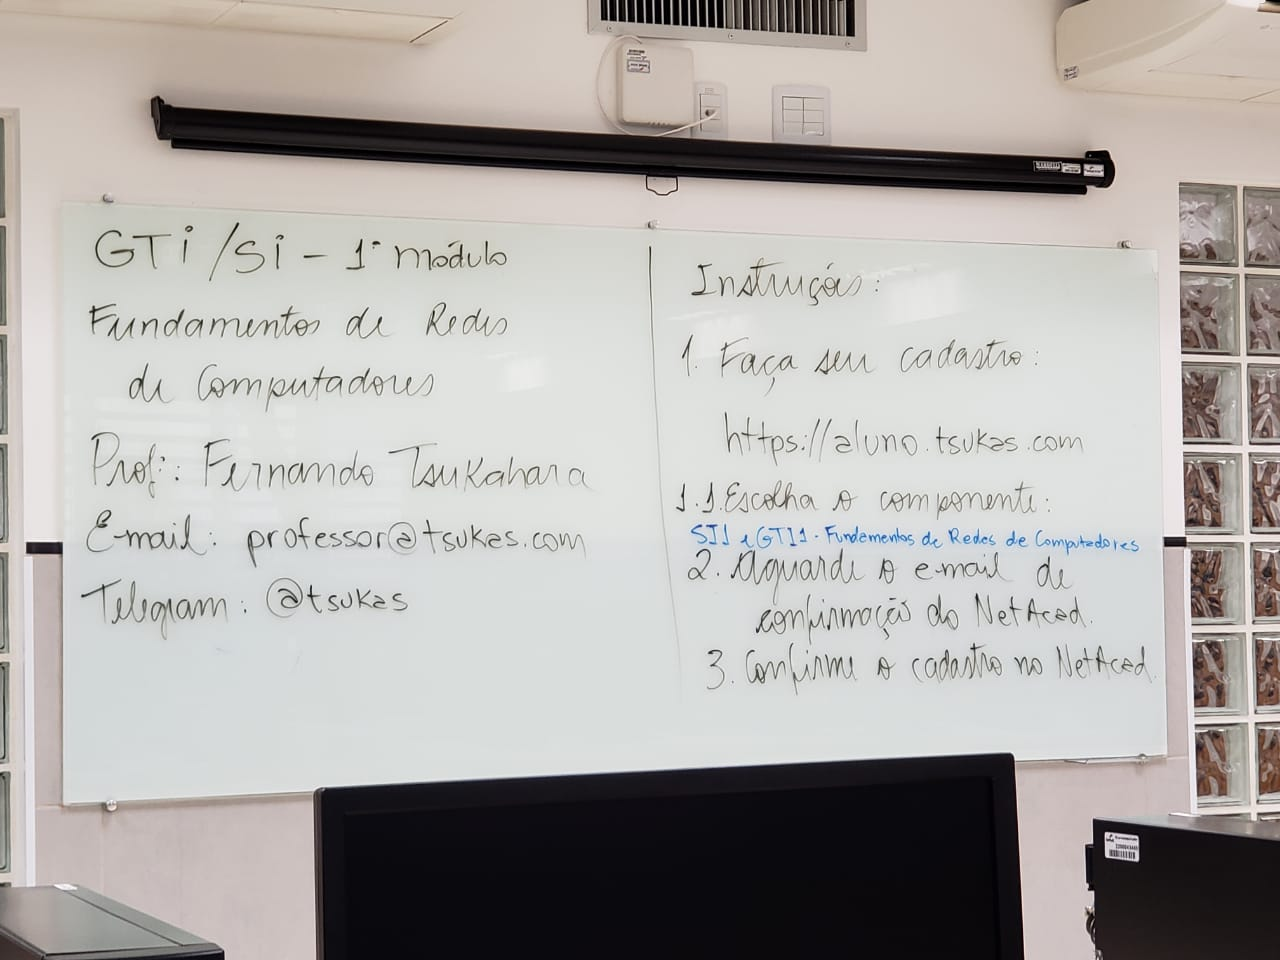 GTi/Si - 1º módulo
Fundamentos de Redes
de Computadores
Prof.: Fernando Tsukahara
E-mail: professor@tsukas.com
Telegram: @tsukas
Instruções:
1. Faça seu cadastro:
https://aluno.tsukas.com
1.1. Escolha o componente:
SI1 e GTI1 - Fundamentos de Redes de Computadores
2. Aguarde o e-mail de
confirmação do NetAcad.
3. Confirme o cadastro no NetAcad.